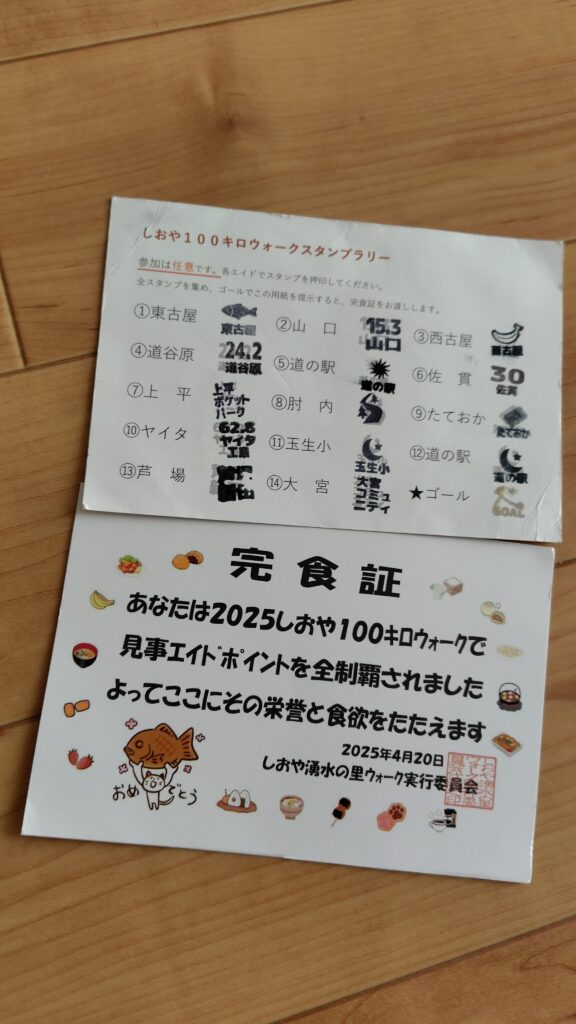 しおや100キロウォークスタンプラリー
参加は任意です。各エイドでスタンプを押印してください。
全スタンプを集め、ゴールでこの用紙を提示すると、完食証をお渡しします。
①東古屋 東古屋 ②山口 15.3 山口 ③西古屋 西古屋
④道谷原 24.2 道谷原 ⑤道の駅 道の駅 ⑥佐貫 30 佐貫
⑦上平 上平ポケットパーク ⑧肘内 ⑨たておか たておか
⑩ヤイタ 62.8 ヤイタ工業 ⑪玉生小 玉生小 ⑫道の駅 道の駅
⑬芦場 ⑭大宮 大宮コミュニティ ★ゴール GOAL
完食証
あなたは2025しおや100キロウォークで
見事エイドポイントを全制覇されました
よってここにその栄誉と食欲をたたえます
2025年4月20日
しおや湧水の里ウォーク実行委員会
おめでとう